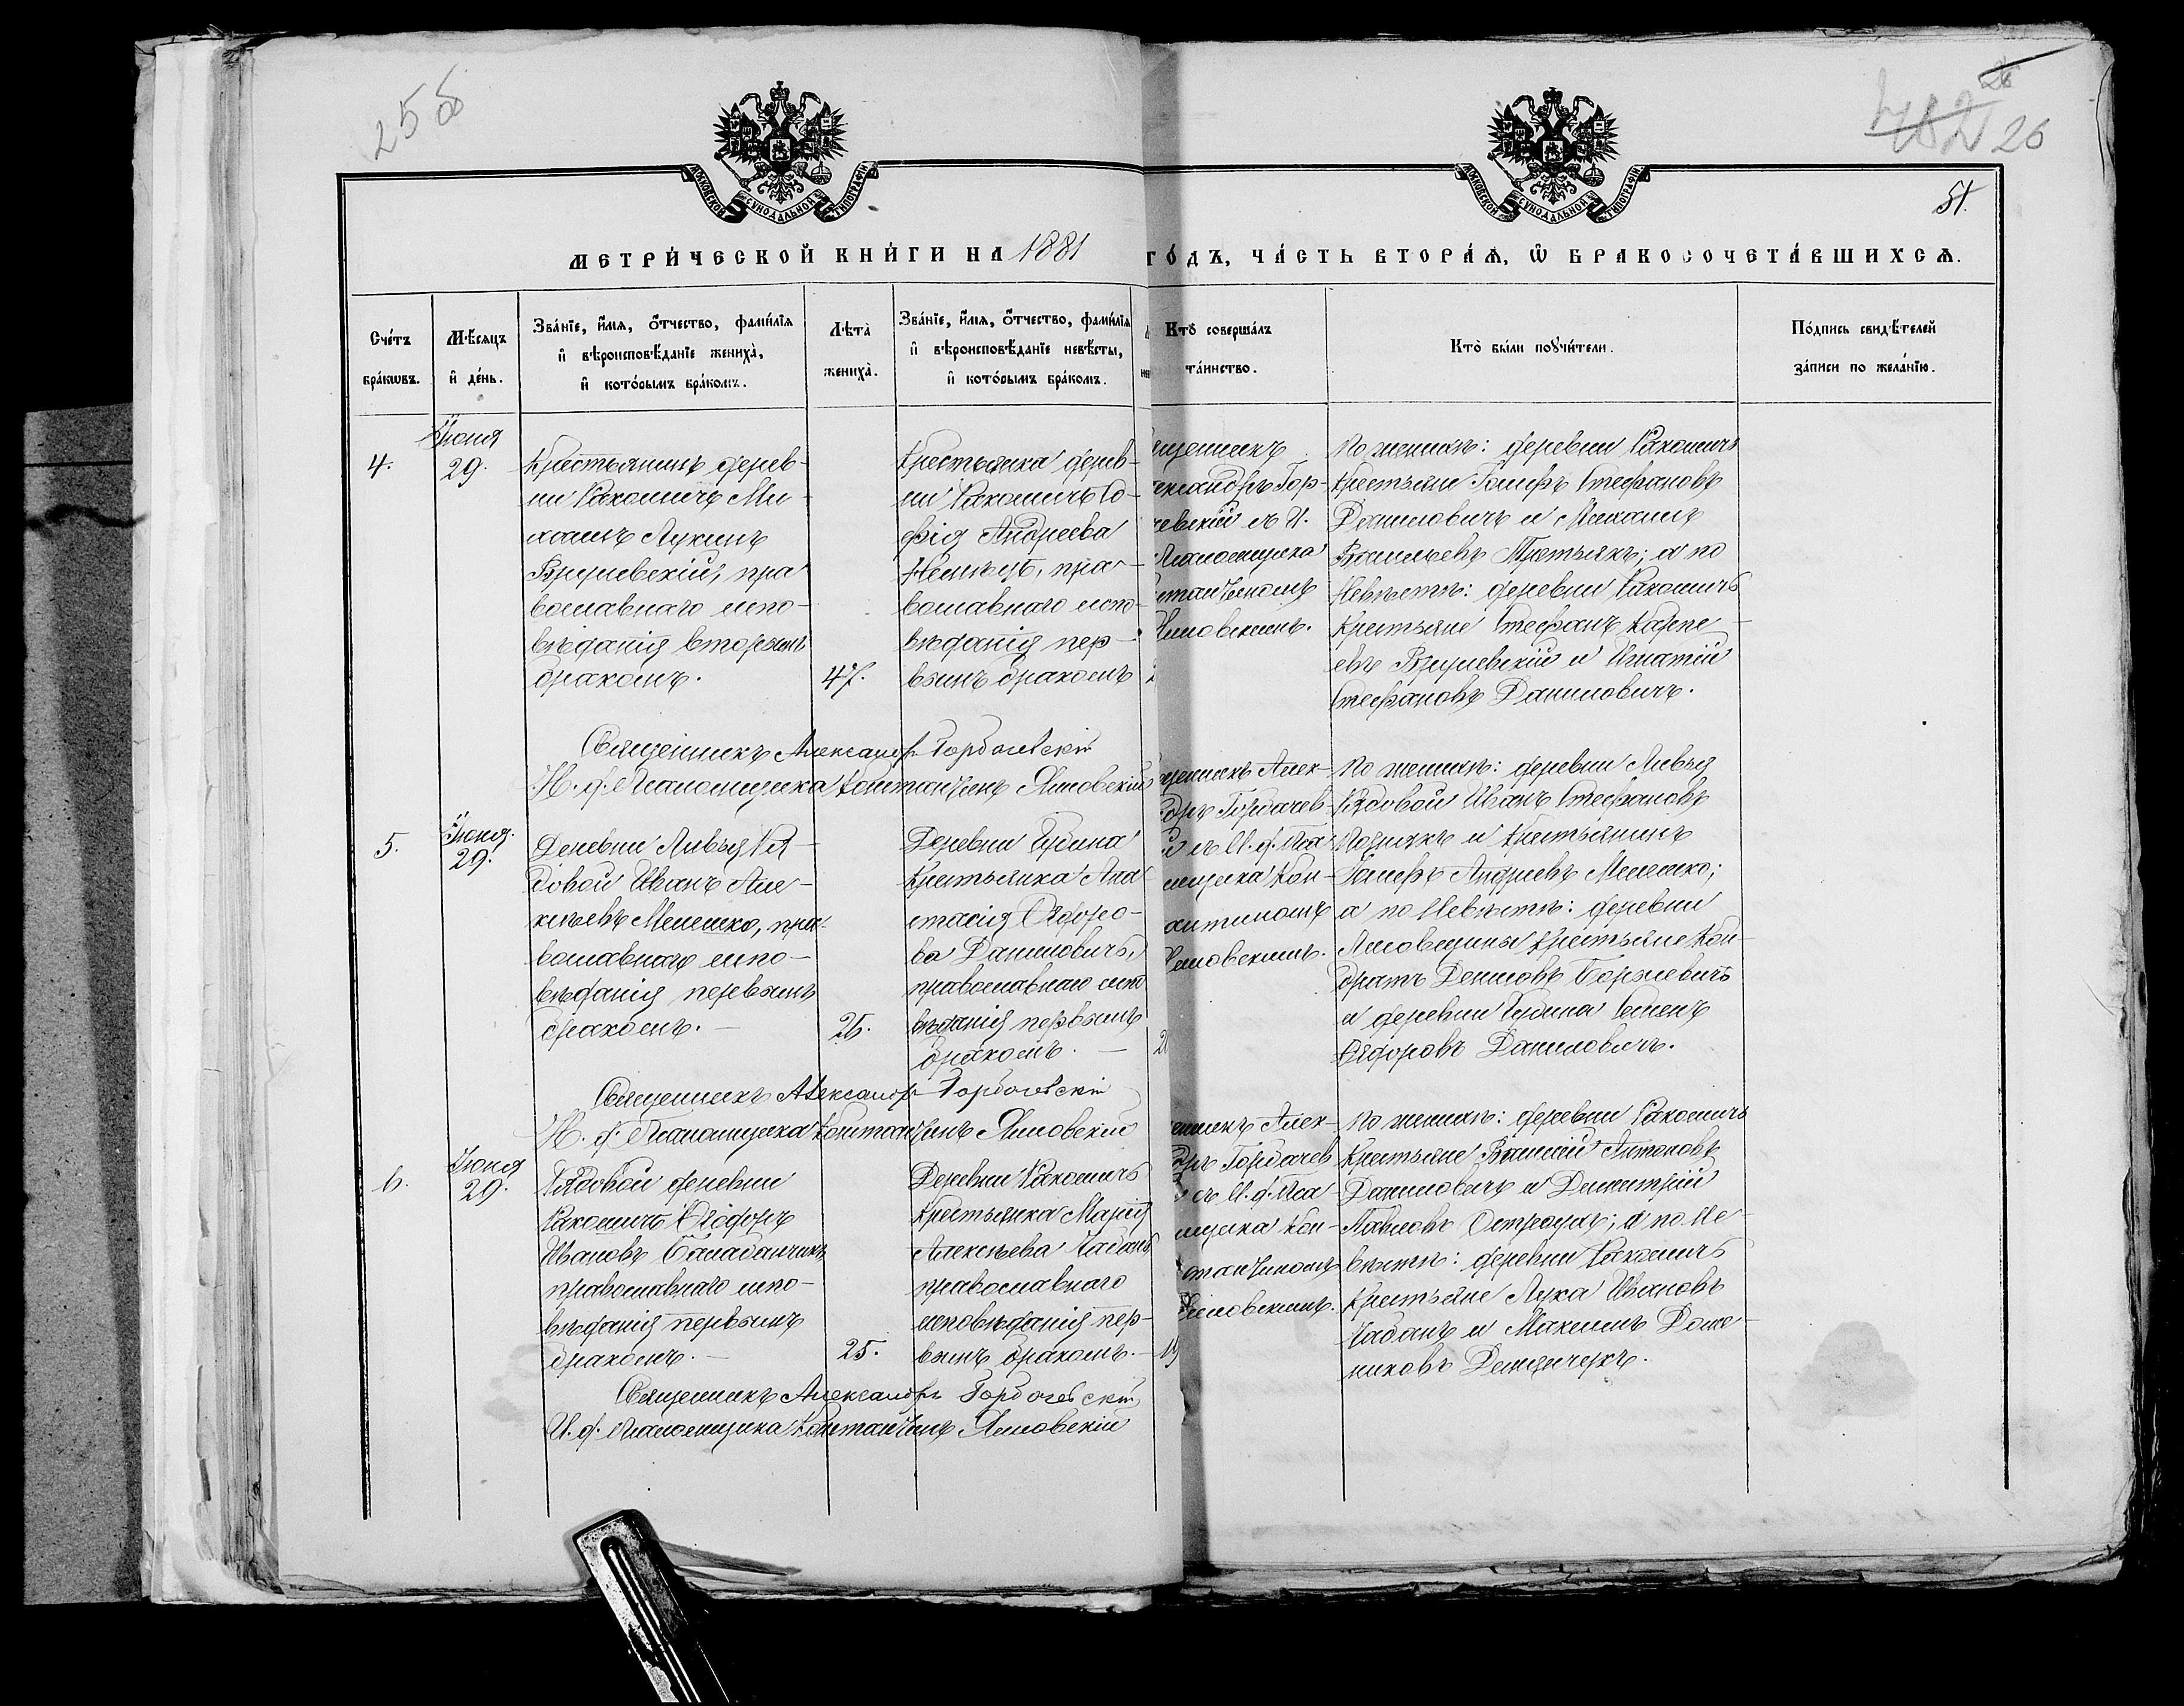 25б
26
26
51.
МОСКОВСКОЙ СУНОДАЛЬНОЙ ТИПОГРАФІИ
МОСКОВСКОЙ СУНОДАЛЬНОЙ ТИПОГРАФІИ
МЕТРИ́ЧЕСКОЙ КНИ́ГИ НА 1881
ГО́ДЪ, ЧА́СТЬ ВТОРА́Ѧ, Ѡ҆ БРАКОСОЧЕТА́ВШИХСѦ.
Сче́тъ
бра́кѡвъ.
Мѣ́сѧцъ
и҆ де́нь.
Зва́нїе, и҆́мѧ, о҆́тчество, фами́лїѧ
и҆ вѣроисповѣ́данїе жениха̀,
и҆ кото́рымъ бра́комъ.
Лѣта̀
жениха̀.
Зва́нїе, и҆́мѧ, о҆́тчество, фами́лїѧ
и҆ вѣроисповѣ́данїе невѣ́сты,
и҆ кото́рымъ бра́комъ.
Кто̀ соверша́лъ
та́инство.
Кто̀ бы́ли порꙋчи́тели.
По́дпись свидѣ́телей
за́писи по жела́нїю.
4.
Іюня
29.
Крестьянинъ дерев-
ни Рахомичъ Ми-
хаилъ Лукинъ
православнаго испо-
вѣданія вторымъ
бракомъ.
47.
Крестьянка дерев-
ни Рахомичъ Со-
фія Андреева
православнаго испо-
вѣданія пер-
вымъ бракомъ
щенникъ
ександръ Гор-
чевскій съ И.
Псаломщика
стантиномъ
Ясновскимъ.
По женихѣ: деревни Рахомичъ
Крестьяне Іосифъ Стефановъ
Даниловичъ и Михаилъ
Васильевъ Третьякъ; а по
Невѣстѣ: деревни Рахомичъ
Крестьяне Стефанъ
и Игнатій
Стефановъ Даниловичъ.
Священникъ Александръ Горбачевскій
И. д. Псаломщика Константинъ Ясновскій
5.
Іюня.
29.
Деревни Ря-
довой Иванъ Але-
ксѣевъ Мелешко, пра-
вославнаго испо-
вѣданія первымъ
бракомъ. —
25.
Деревни
Крестьянка Ана
стасія Ѳедоро-
ва Даниловичъ,
православнаго испо
вѣданія первымъ
бракомъ. —
щенникъ Алек-
дръ Горбачев-
съ И. д. Пса
мщика Кон-
антиномъ
Ясновскимъ.
По женихѣ: деревни
Рядовой Иванъ Стефановъ
и Крестьянинъ
Іосифъ Андреевъ Мелешко;
а по Невѣстѣ: деревни
Крестьяне Кон-
дратъ Денисовъ
и деревни Семенъ
Ѳедоровъ Даниловичъ.
Священникъ Александръ Горбачевскій
И. д. Псаломщика Константинъ Ясновскій
6.
Іюня
29.
Рядовой деревни
Рахомичъ Ѳеодоръ
Ивановъ Балабанчикъ
православнаго испо-
вѣданія первымъ
бракомъ. —
25.
Деревни Рахомичъ
Крестьянка Марія
Алексѣева Чабанъ
православнаго
исповѣданія пер-
вымъ бракомъ. —
19
енникъ Алек-
дръ Горбачев
съ И. д. Пса
мщика Кон-
стантиномъ
Ясновскимъ.
По женихѣ: деревни Рахомичъ
Крестьяне Василій Антоновъ
Даниловичъ и Димитрій
Павловъ Остроухъ; а по Не-
вѣстѣ: деревни Рахомичъ
Крестьяне Лука Ивановъ
Чабанъ и Максимъ Доме-
никовъ
Священникъ Александръ Горбачевскій
И. д. Псаломщика Константинъ Ясновскій